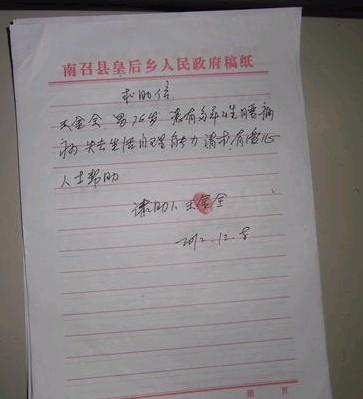 南召县皇后乡人民政府稿纸
求助信
王金全 男 76岁 患有多年性腰痛
病 失去生活自理能力 请求有爱心
人士帮助
求助人 王金全
2012.12.8
第 页